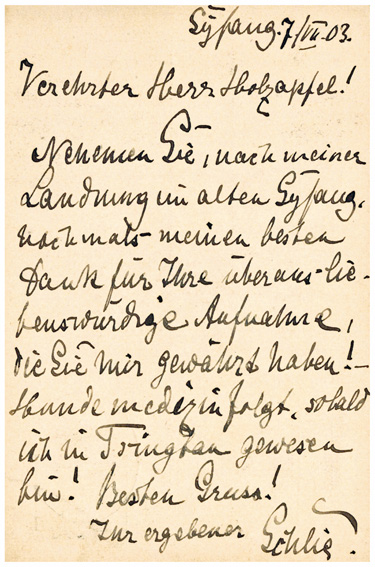 Syfang. 7/VII.03.
Verehrter Herr Holzapfel!
Nehmen Sie, nach meiner
Landung im alten Syfang,
nochmals meinen besten
Dank für Ihre überaus lie-
benswürdige Aufnahme,
die Sie mir gewährt haben! –
Hundemedizin folgt, sobald
ich in Tsingtau gewesen
bin! Besten Gruss!
Ihr ergebener Schlie.